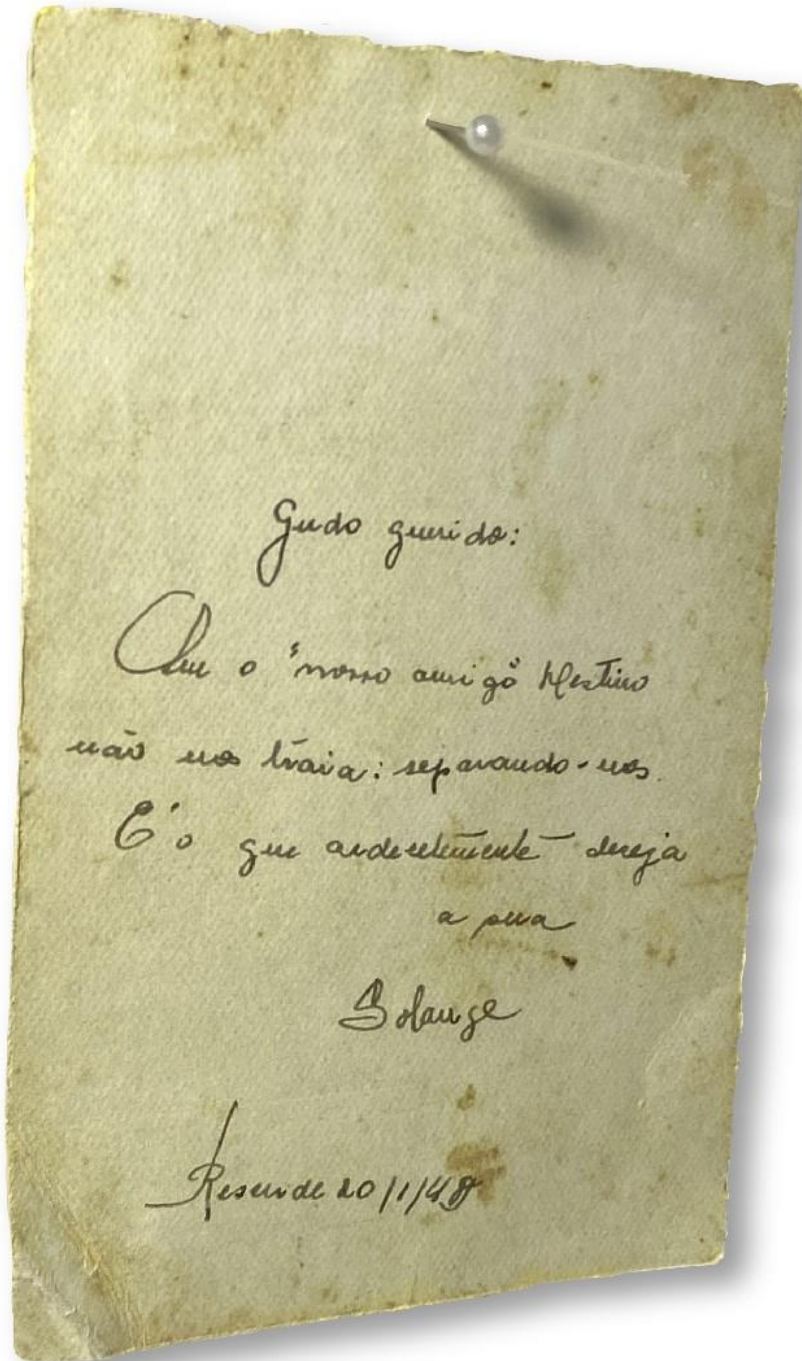 Gudo querido:
Que o "nosso amigo" Destino
não nos traia: separando-nos.
E' o que ardentemente deseja
a sua
Solange
Resende 20/1/48